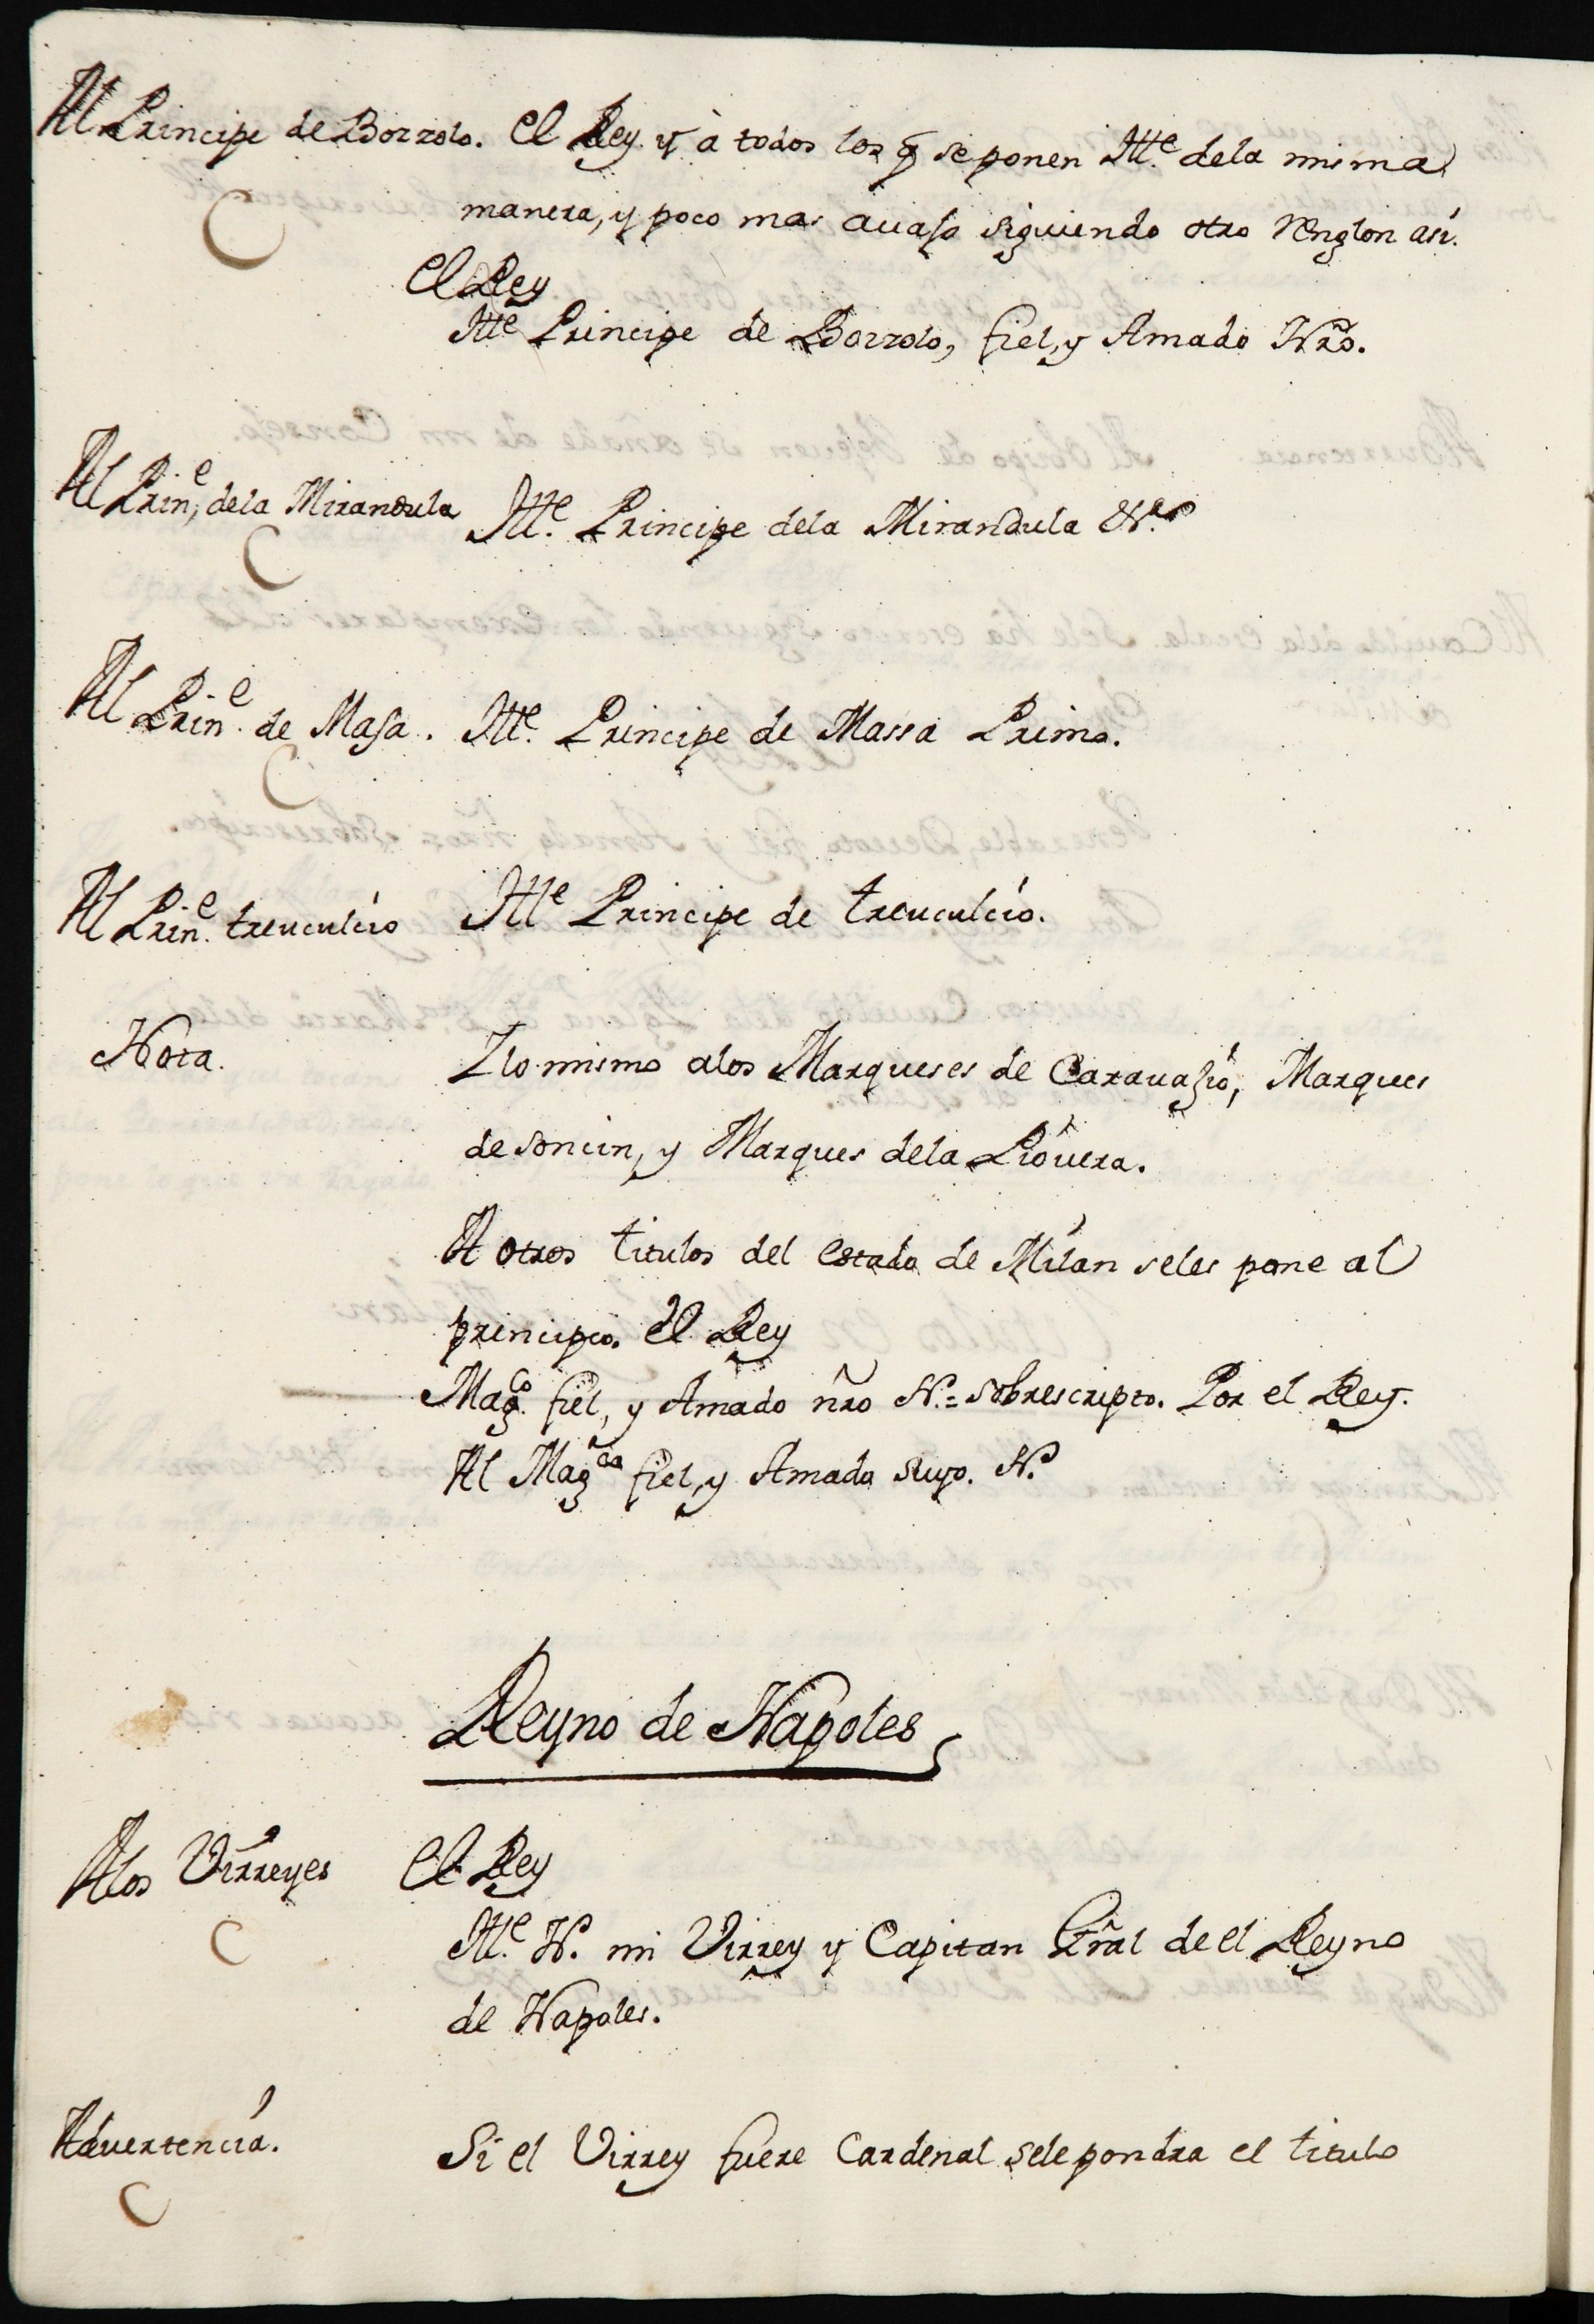 Al Principe de Bozzolo. El Rey. y à todos los q̃ se ponen Ille. dela misma
manera, y poco mas auaso siguiendo otro renglon asi.
El Rey
Ille Principe de Bozzolo, fiel, y Amado Nrõ.
Al Prine. dela Mirandula Ille. Principe dela Mirandula &a.
Al Prine. de Masa. Ille. Principe de Massa Primo.
Al Prine. treuculcio Ille Principe de treuculcio.
Nota. Ylo mismo alos Marqueses de Carauasio, Marques
de Soncin, y Marques dela Piouera.
A otros titulos del estado de Milan seles pone al
principio. El Rey
Magco. fiel, y Amado nrõ N.= Sobrescripto. Por el Rey.
Al Magco fiel, y Amado suyo. N.
Reyno de Napoles
Alos Virreyes El Rey
Ille. N. mi Virrey y Capitan Gral de el Reyno
de Napoles.
Aduertencia. Si el Virrey fuere Cardenal sele pondra el titulo